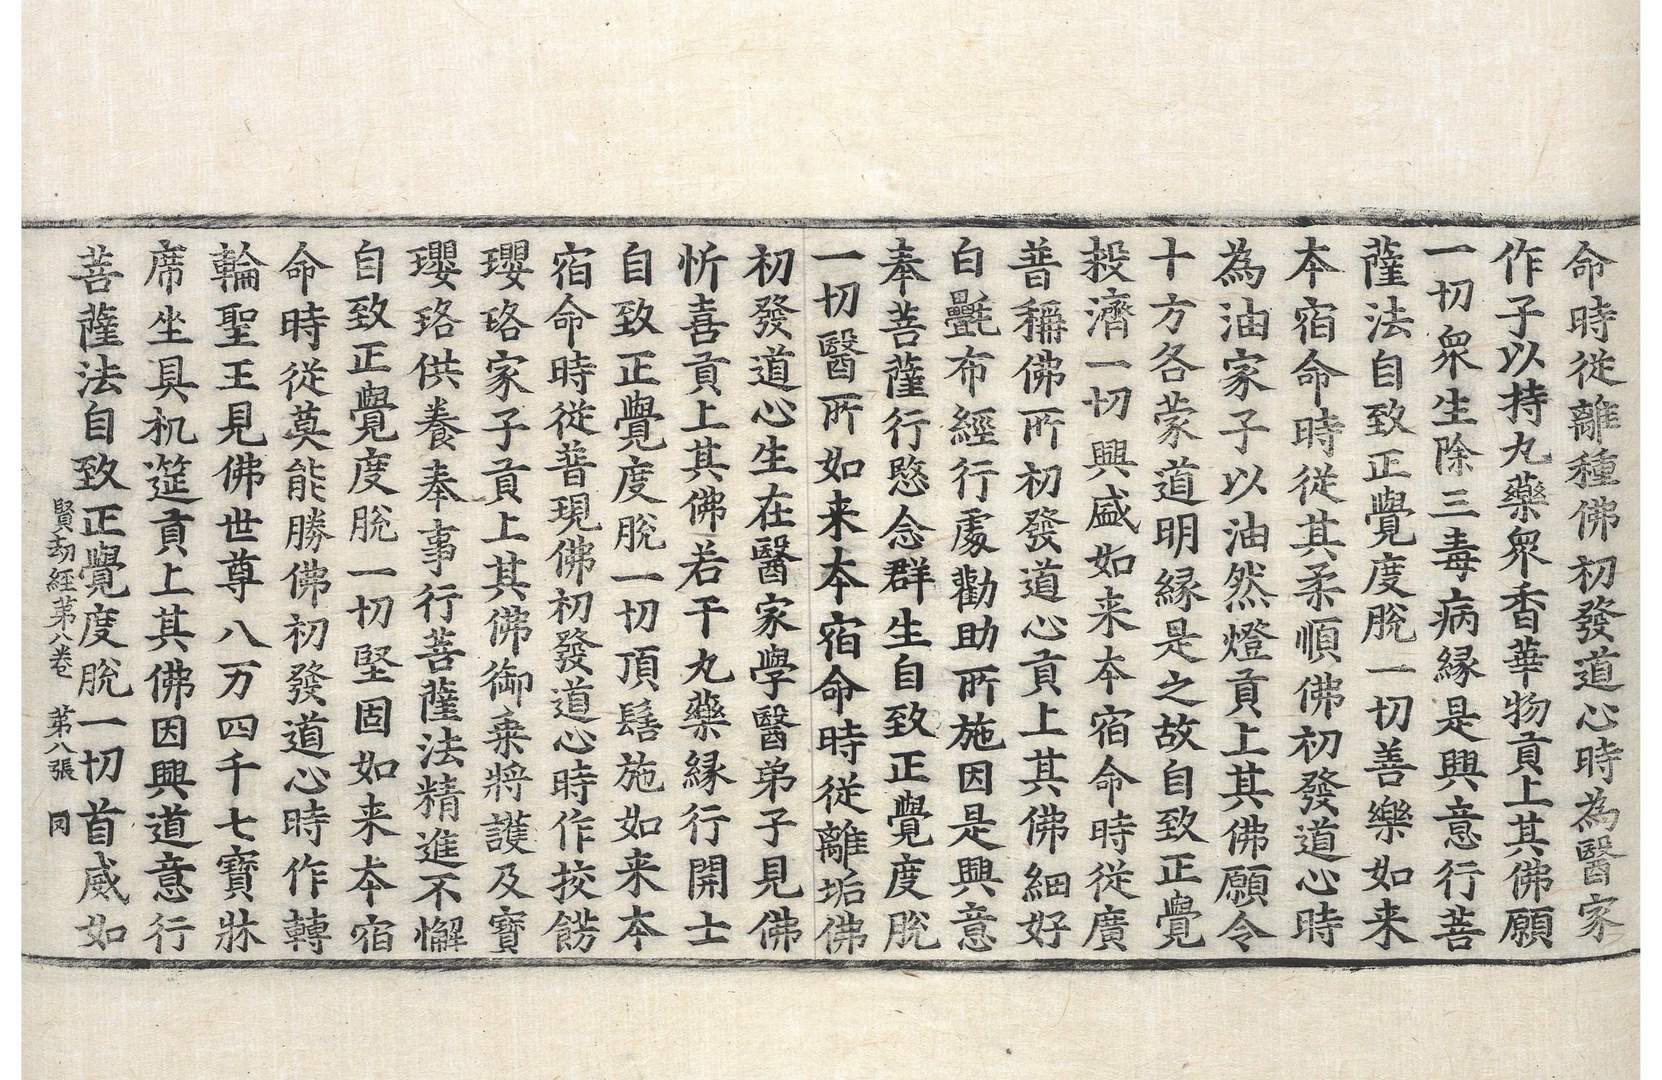 命時從離種佛初發道心時為醫家
作子以持丸藥衆香華物貢上其佛願
一切衆生除三毒病緣是興意行菩
薩法自致正覺度脫一切善樂如来
本宿命時從其柔順佛初發道心時
為油家子以油然燈貢上其佛願令
十方各蒙道明緣是之故自致正覺
殺濟一切興盛如来本宿命時從廣
普稱佛所初發道心貢上其佛細好
白㲲布經行處勸助所施因是興意
奉菩薩行愍念群生自致正覺度脫
一切醫所如来本宿命時從離垢佛
初發道心生在醫家學醫弟子見佛
忻喜貢上其佛若干丸藥緣行開士
自致正覺度脫一切頂髻施如来本
宿命時從普現佛初發道心時作挍餝
瓔珞家子貢上其佛御乗將護及寶
瓔珞供養奉事行菩薩法精進不懈
自致正覺度脫一切堅固如来本宿
命時從莫能勝佛初發道心時作轉
輪聖王見佛世尊八万四千七寶牀
席坐具机筵貢上其佛因興道意行
菩薩法自致正覺度脫一切首威如
賢劫經第八卷 第八張 同